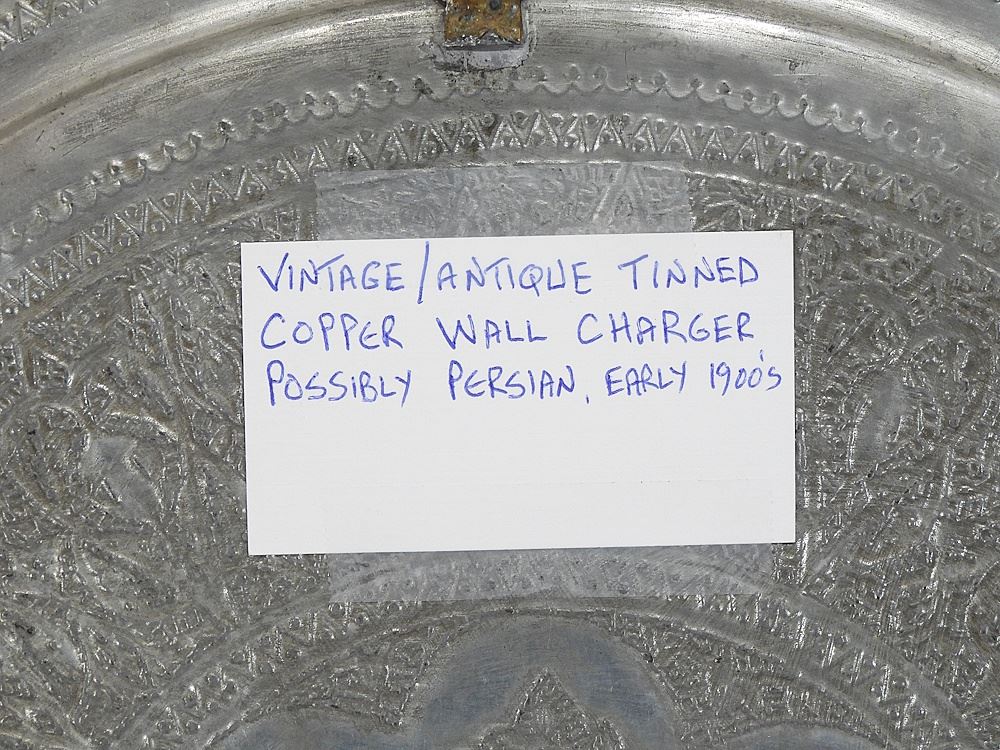 VINTAGE/ANTIQUE TINNED
COPPER WALL CHARGER,
POSSIBLY PERSIAN, EARLY 1900's